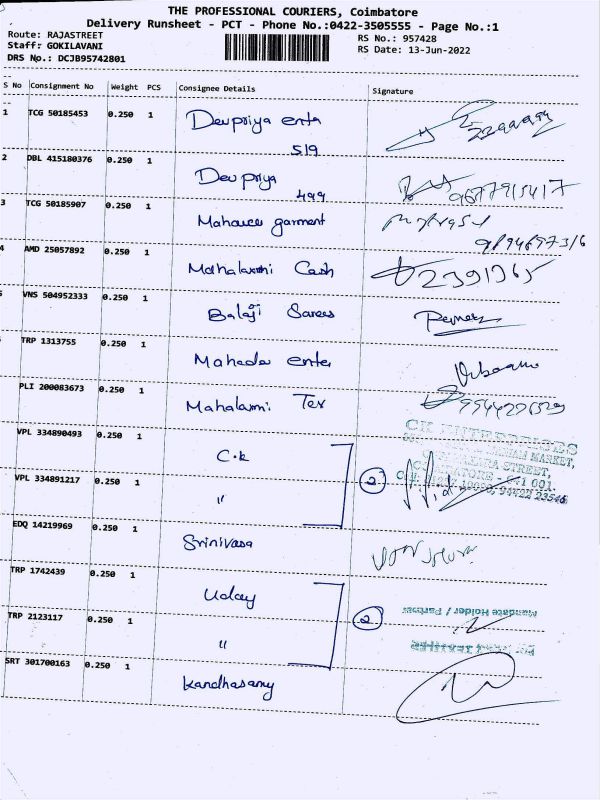 THE PROFESSIONAL COURIERS, Coimbatore
Delivery Runsheet - PCT - Phone No.:0422-3505555 - Page No.:1
Route: RAJASTREET
RS No.: 957428
Staff: GOKILAVANI
RS Date: 13-Jun-2022
DRS No.: DCJB95742801
S No Consignment No Weight PCS Consignee Details Signature
1 TCG 50185453 0.250 1 Devpriya enta
519
2 DBL 415180376 0.250 1 Devpriya
499 9677915417
3 TCG 50185907 0.250 1 garment
4 AMD 25057892 0.250 1 Mahalaxmi Cash
VNS 504952333 0.250 1 Balaji Sarees
TRP 1313755 0.250 1 Mahada enter
PLI 200083673 0.250 1 Mahalaxmi Tex
VPL 334890493 0.250 1 C.k
CK ENTERPRISES
MARKET,
STREET,
COIMBATORE - 641 001.
94422 23546
2
VPL 334891217 0.250 1 "
EDQ 14219969 0.250 1 Srinivasa
TRP 1742439 0.250 1 Uday
2
Mandate Holder / Partner
TRP 2123117 0.250 1 "
SRT 301700163 0.250 1 Kandhasamy